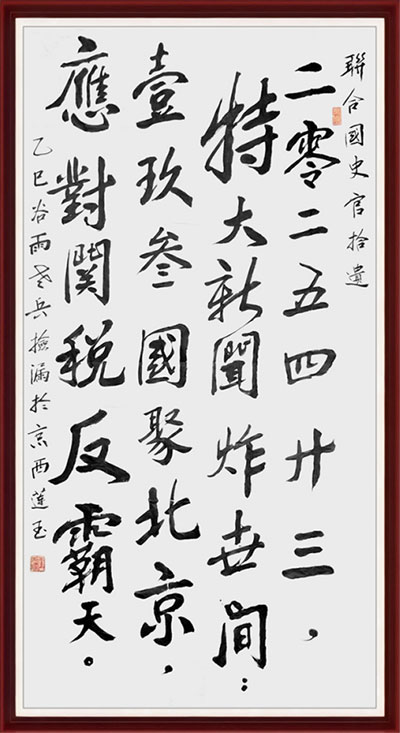 聯合國史官拾遺
二零二五四廿三，
特大新聞炸世間：
壹玖叁國聚北京，
應對関税反霸天。
乙巳谷雨老兵撿漏於京西蓮玉